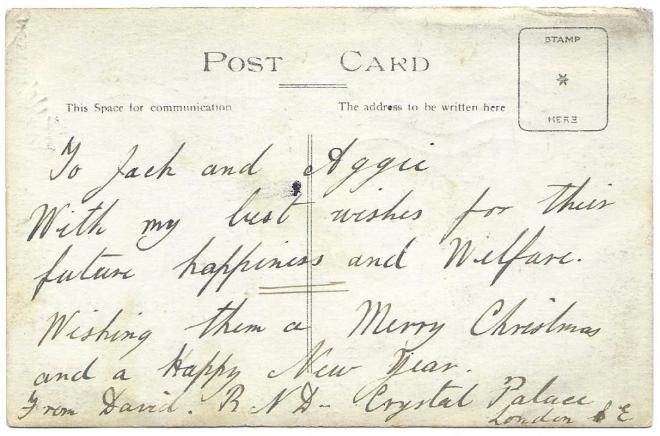 POST CARD
STAMP
HERE
This Space for communication
The address to be written here
To Jack and Aggie
With my best wishes for their
future happiness and Welfare.
Wishing them a Merry Christmas
and a Happy New Year.
From David. R N D - Crystal Palace
London S E